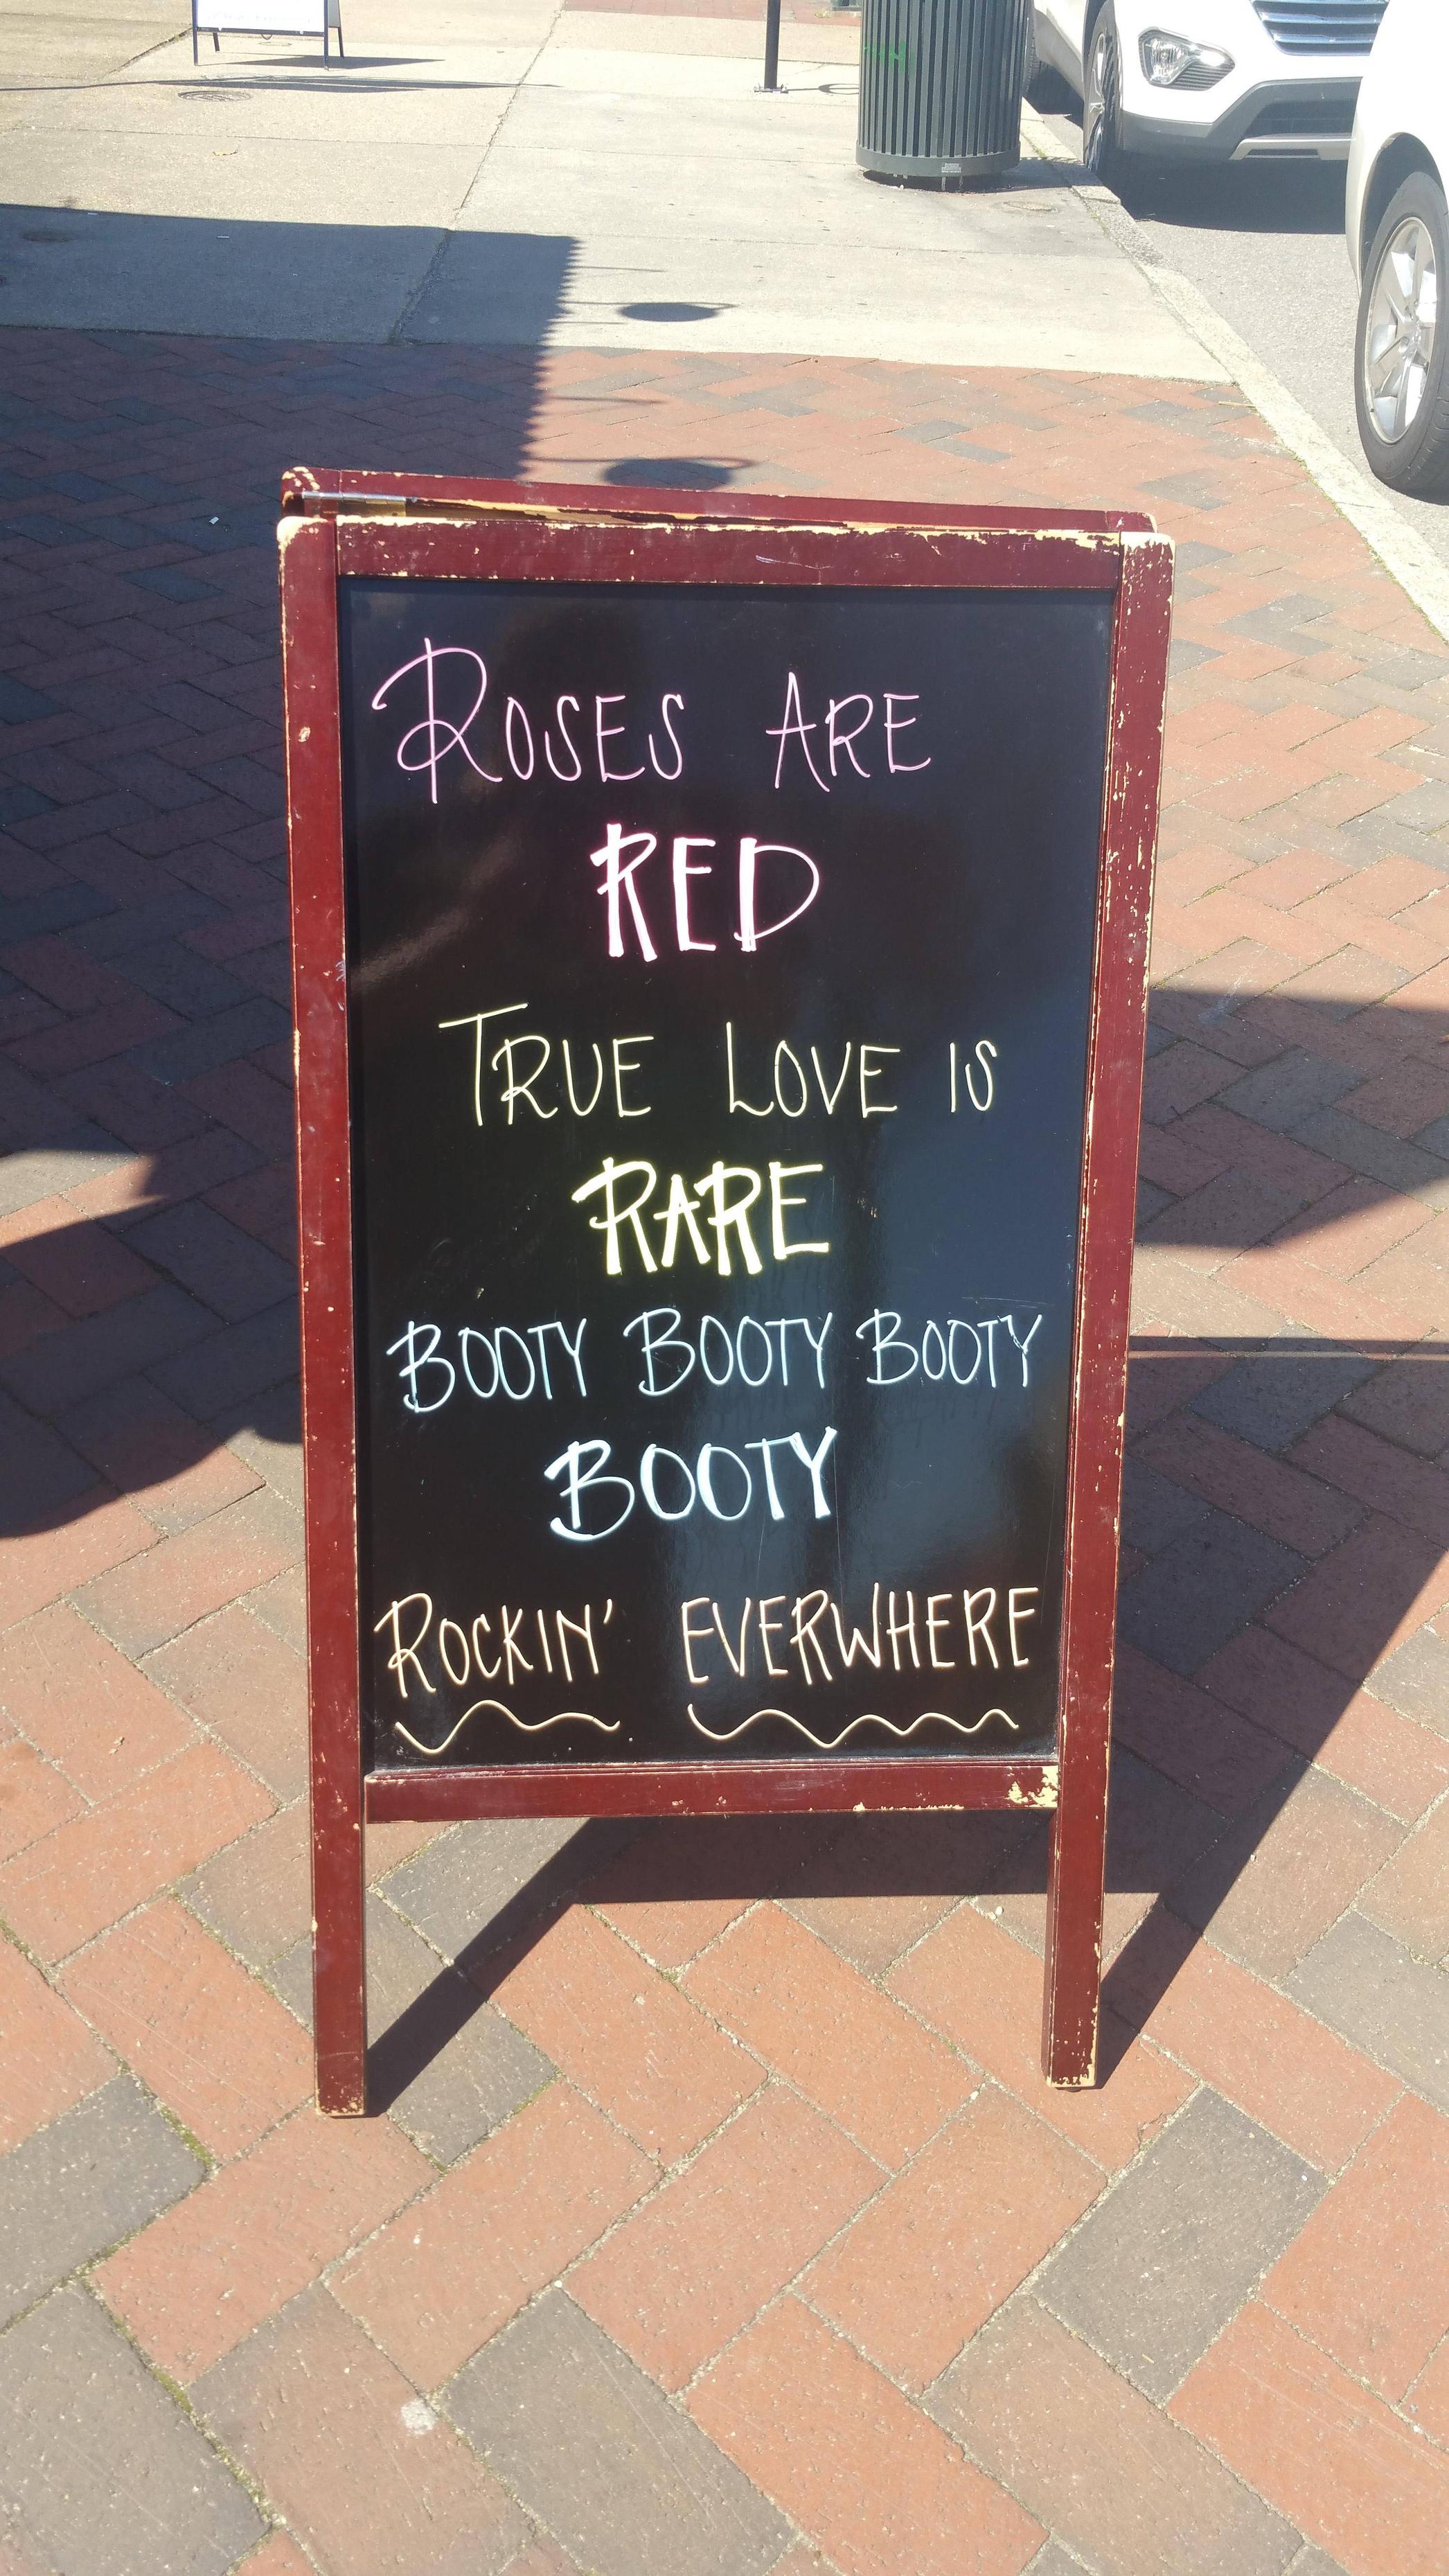 ROSES ARE
RED
TRUE LOVE IS
RARE
BOOTY BOOTY BOOTY
BOOTY
ROCKIN' EVERWHERE